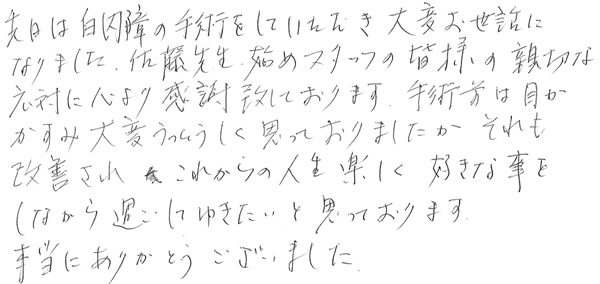 先日は白内障の手術をしていただき大変お世話に
なりました。佐藤先生始めスタッフの皆様の親切な
応対に心より感謝致しております。手術前は目が
かすみ大変うっとうしく思っておりましたが それも
改善され これからの人生楽しく好きな事を
しながら過ごしてゆきたいと思っております。
本当にありがとうございました。